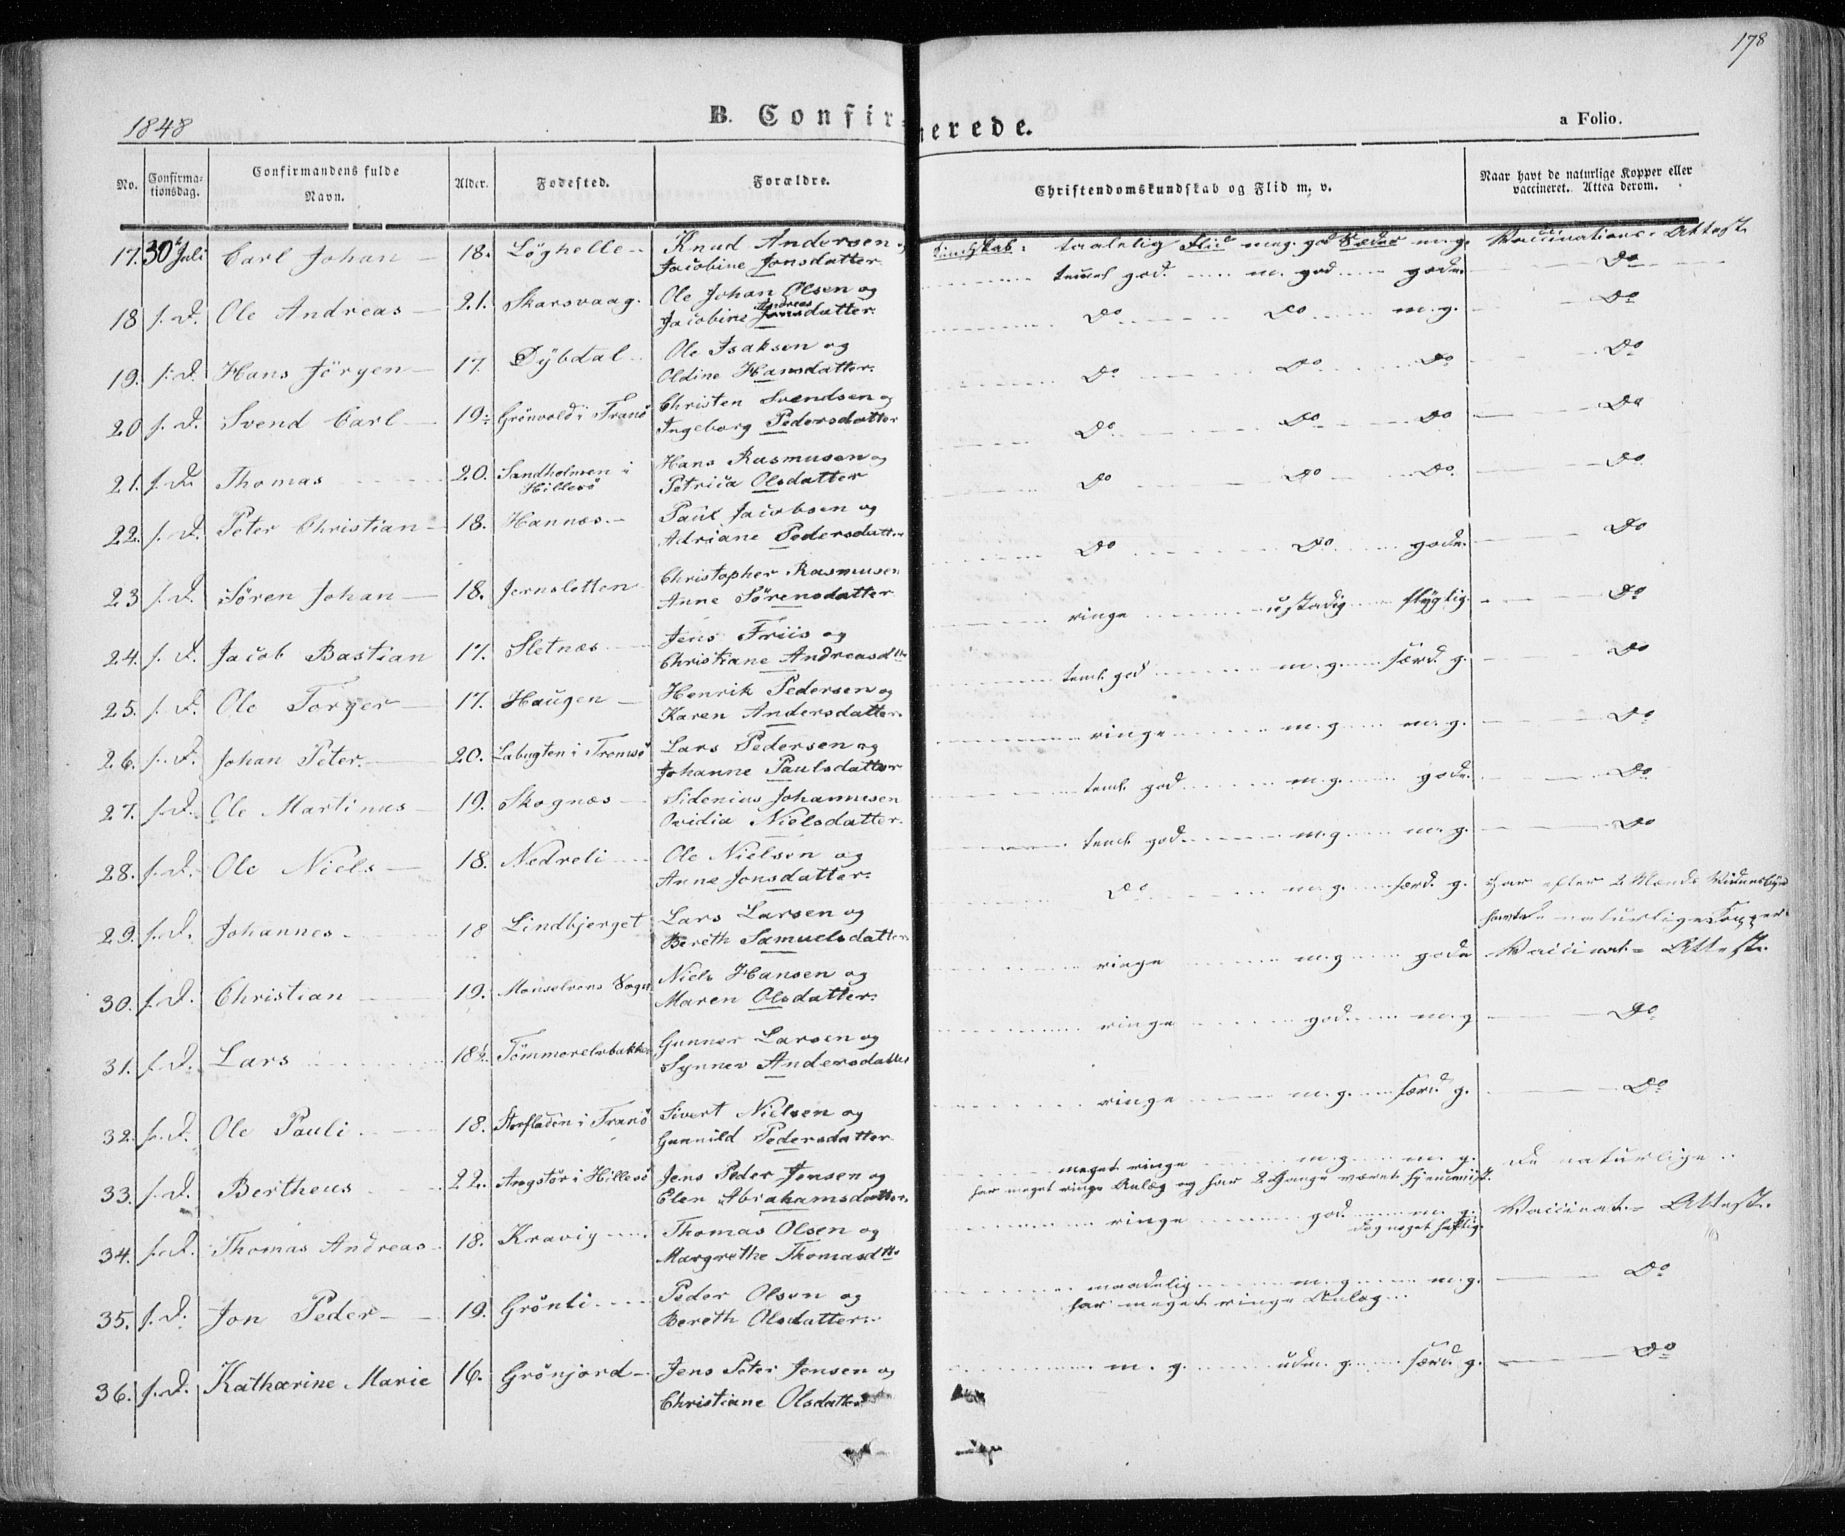 178
1848
B. Confirmerede.
a Folio.
No. Confirmationsdag. Confirmandens fulde Navn. Alder. Fødested. Forældre. Christendomskundskab og Flid m. v. Naar havt de naturlige Kopper eller vaccineret. Attea derom.
17. 30 Juli Carl Johan 18. Löghelle Knud Andersen
Jacobine Jonsdatter
Kundskab: taalelig Flid meg. god Sæder m.g. Vaccinations-Attest
18 s. D. Ole Andreas 21. Skarsvaag. Ole Johan Olsen og
Jacobine Andreasdatter
teml god m. god gode. Do
19. s. D. Hans Jörgen 17. Dÿbdal Ole Isaksen og
Oldine Hansdatter
Do Do m.g. Do
20 s. D. Svend Carl 19. Grönvold i Tranö Christen Svendsen og
Ingeborg Pedersdatter
Do Do Do Do
21. s. D. Thomas 20. Sandholmen i Hillesö Hans Rasmusen og
Petrica Olsdatter
Do Do Do Do
22. s. D. Peter Christian 18. Hannæs Paul Jacobsen og
Adriane Pedersdatter
Do Do Do. Do
23 s. D. Sören Johan 18. Jernsletten Christopher Rasmusen
Anne Sörensdatter
Do Do gode. Do
24. s. D. Jacob Bastian 17. Sletnæs Jens Friis og
Christiane Andreasdtr
ringe ustadig flygtig. Do
25. s. D. Ole Torger 17. Haugen Henrik Pedersen og
Karen Andersdatter
teml. god m. g. særd. g. Do
26. s. D. Johan Peter 20. Labugten i Tromsö Lars Pedersen og
Johanne Paulsdatter
ringe m. g. m. g. Do
27. s. D. Ole Martinus 19. Skognæs Sidenius Johannesen
Ovidia Nielsdatter
teml. god m. g. gode. Do
28. s. D. Ole Niels 18. Nedreli Ole Nielsen og
Anne Jonsdatter
teml. god m. g. m. g. Do
29. s. D. Johannes 18 Lindbjerget Lars Larsen og
Bereth Samuelsdatter
Do m. g. særd. g. Har efter 2 Mænds
havt de naturlige Kopper
30. s. D. Christian 19. Maaselvens Sogn Niels Hansen og
Maren Olsdatter
ringe m. g. gode Vaccinat. Attest.
31. s. D. Lars 18½. Tömmerelvbakken Gunner Larsen og
Synnev Andersdatter
ringe god m. g. Do
32. s. D. Ole Pauli 18. Storfladen i Tranö Sivert Nielsen og
Gunnild Pedersdatter
ringe m. g. særd. g. Do
33. s. D. Bertheus 22. Angstör i Hillesö Jens Peder Jensen og
Elen Abrahamsdatter
meget ringe m. g. m. g. De naturlige
har meget ringe Anlæg og har 2 Gange været hjemvist.
34. s. D. Thomas Andreas 18. Kravig Thomas Olsen og
Margrethe Thomasdtr
ringe god m. g. Vaccinat. Attest.
dog noget hæftig.
35. s. D. Jon Peder 19. Grönli Peder Olsen og
Bereth Olsdatter
maadelig m. g. m. g. Do
har meget ringe Anlæg
36. s. D. Katharine Marie 16. Grönjord Jens Peter Jensen og
Christiane Olsdatter
m. g. udm. g. særd. g. Do